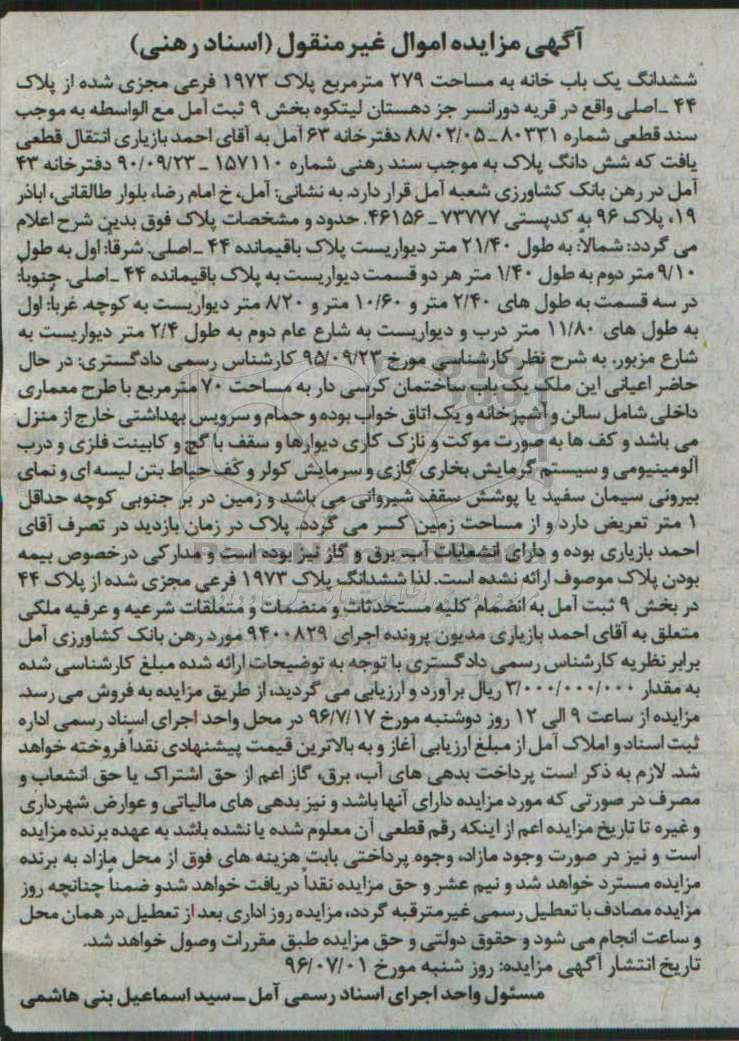 آگهی مزایده اموال غیرمنقول (اسناد رهنی)
ششدانگ یک باب خانه به مساحت ۲۷۹ مترمربع پلاک ۱۹۷۳ فرعی مجزی شده از پلاک
۴۴ ـ اصلی واقع در قریه دورانسر جز دهستان لیتکوه بخش ۹ ثبت آمل مع الواسطه به موجب
سند قطعی شماره ۸۰۳۳۱ ـ ۸۸/۰۲/۰۵ دفترخانه ۶۳ آمل به آقای احمد بازیاری انتقال قطعی
یافت که شش دانگ پلاک به موجب سند رهنی شماره ۱۵۷۱۱۰ ـ ۹۰/۰۹/۲۳ دفترخانه ۴۳
آمل در رهن بانک کشاورزی شعبه آمل قرار دارد. به نشانی: آمل، خ امام رضا، بلوار طالقانی، اباذر
۱۹، پلاک ۹۶ به کدپستی ۷۳۷۷۷ ـ ۴۶۱۵۶. حدود و مشخصات پلاک فوق بدین شرح اعلام
می گردد: شمالاً: به طول ۲۱/۴۰ متر دیواریست پلاک باقیمانده ۴۴ ـ اصلی. شرقاً: اول به طول
۹/۱۰ متر دوم به طول ۱/۴۰ متر هر دو قسمت دیواریست به پلاک باقیمانده ۴۴ ـ اصلی. جنوباً:
در سه قسمت به طول های ۲/۴۰ متر و ۱۰/۶۰ متر و ۸/۲۰ متر دیواریست به کوچه. غرباً: اول
به طول های ۱۱/۸۰ متر درب و دیواریست به شارع عام دوم به طول ۲/۴ متر دیواریست به
شارع مزبور. به شرح نظر کارشناسی مورخ ۹۵/۰۹/۲۳ کارشناس رسمی دادگستری: در حال
حاضر اعیانی این ملک یک باب ساختمان کرسی دار به مساحت ۷۰ مترمربع با طرح معماری
داخلی شامل سالن و آشپزخانه و یک اتاق خواب بوده و حمام و سرویس بهداشتی خارج از منزل
می باشد و کف ها به صورت موکت و نازک کاری دیوارها و سقف با گچ و کابینت فلزی و درب
آلومینیومی و سیستم گرمایش بخاری گازی و سرمایش کولر و کف حیاط بتن لیسه ای و نمای
بیرونی سیمان سفید با پوشش سقف شیروانی می باشد و زمین در بر جنوبی کوچه حداقل
۱ متر تعریض دارد و از مساحت زمین کسر می گردد. پلاک در زمان بازدید در تصرف آقای
احمد بازیاری بوده و دارای انشعابات آب، برق و گاز نیز بوده است و مدارکی درخصوص بیمه
بودن پلاک موصوف ارائه نشده است. لذا ششدانگ پلاک ۱۹۷۳ فرعی مجزی شده از پلاک ۴۴
در بخش ۹ ثبت آمل به انضمام کلیه مستحدثات و منضمات و متعلقات شرعیه و عرفیه ملکی
متعلق به آقای احمد بازیاری مدیون پرونده اجرای ۹۴۰۰۸۲۹ مورد رهن بانک کشاورزی آمل
برابر نظریه کارشناس رسمی دادگستری با توجه به توضیحات ارائه شده مبلغ کارشناسی شده
به مقدار ۳/۰۰۰/۰۰۰/۰۰۰ ریال برآورد و ارزیابی می گردید، از طریق مزایده به فروش می رسد.
مزایده از ساعت ۹ الی ۱۲ روز دوشنبه مورخ ۹۶/۷/۱۷ در محل واحد اجرای اسناد رسمی اداره
ثبت اسناد و املاک آمل از مبلغ ارزیابی آغاز و به بالاترین قیمت پیشنهادی نقداً فروخته خواهد
شد. لازم به ذکر است پرداخت بدهی های آب، برق، گاز اعم از حق اشتراک یا حق انشعاب و
مصرف در صورتی که مورد مزایده دارای آنها باشد و نیز بدهی های مالیاتی و عوارض شهرداری
و غیره تا تاریخ مزایده اعم از اینکه رقم قطعی آن معلوم شده یا نشده باشد به عهده برنده مزایده
است و نیز در صورت وجود مازاد، وجوه پرداختی بابت هزینه های فوق از محل مازاد به برنده
مزایده مسترد خواهد شد و نیم عشر و حق مزایده نقداً دریافت خواهد شدو ضمناً چنانچه روز
مزایده مصادف با تعطیل رسمی غیرمترقبه گردد، مزایده روز اداری بعد از تعطیل در همان محل
و ساعت انجام می شود و حقوق دولتی و حق مزایده طبق مقررات وصول خواهد شد.
تاریخ انتشار آگهی مزایده: روز شنبه مورخ ۹۶/۰۷/۰۱
مسئول واحد اجرای اسناد رسمی آمل ـ سید اسماعیل بنی هاشمی